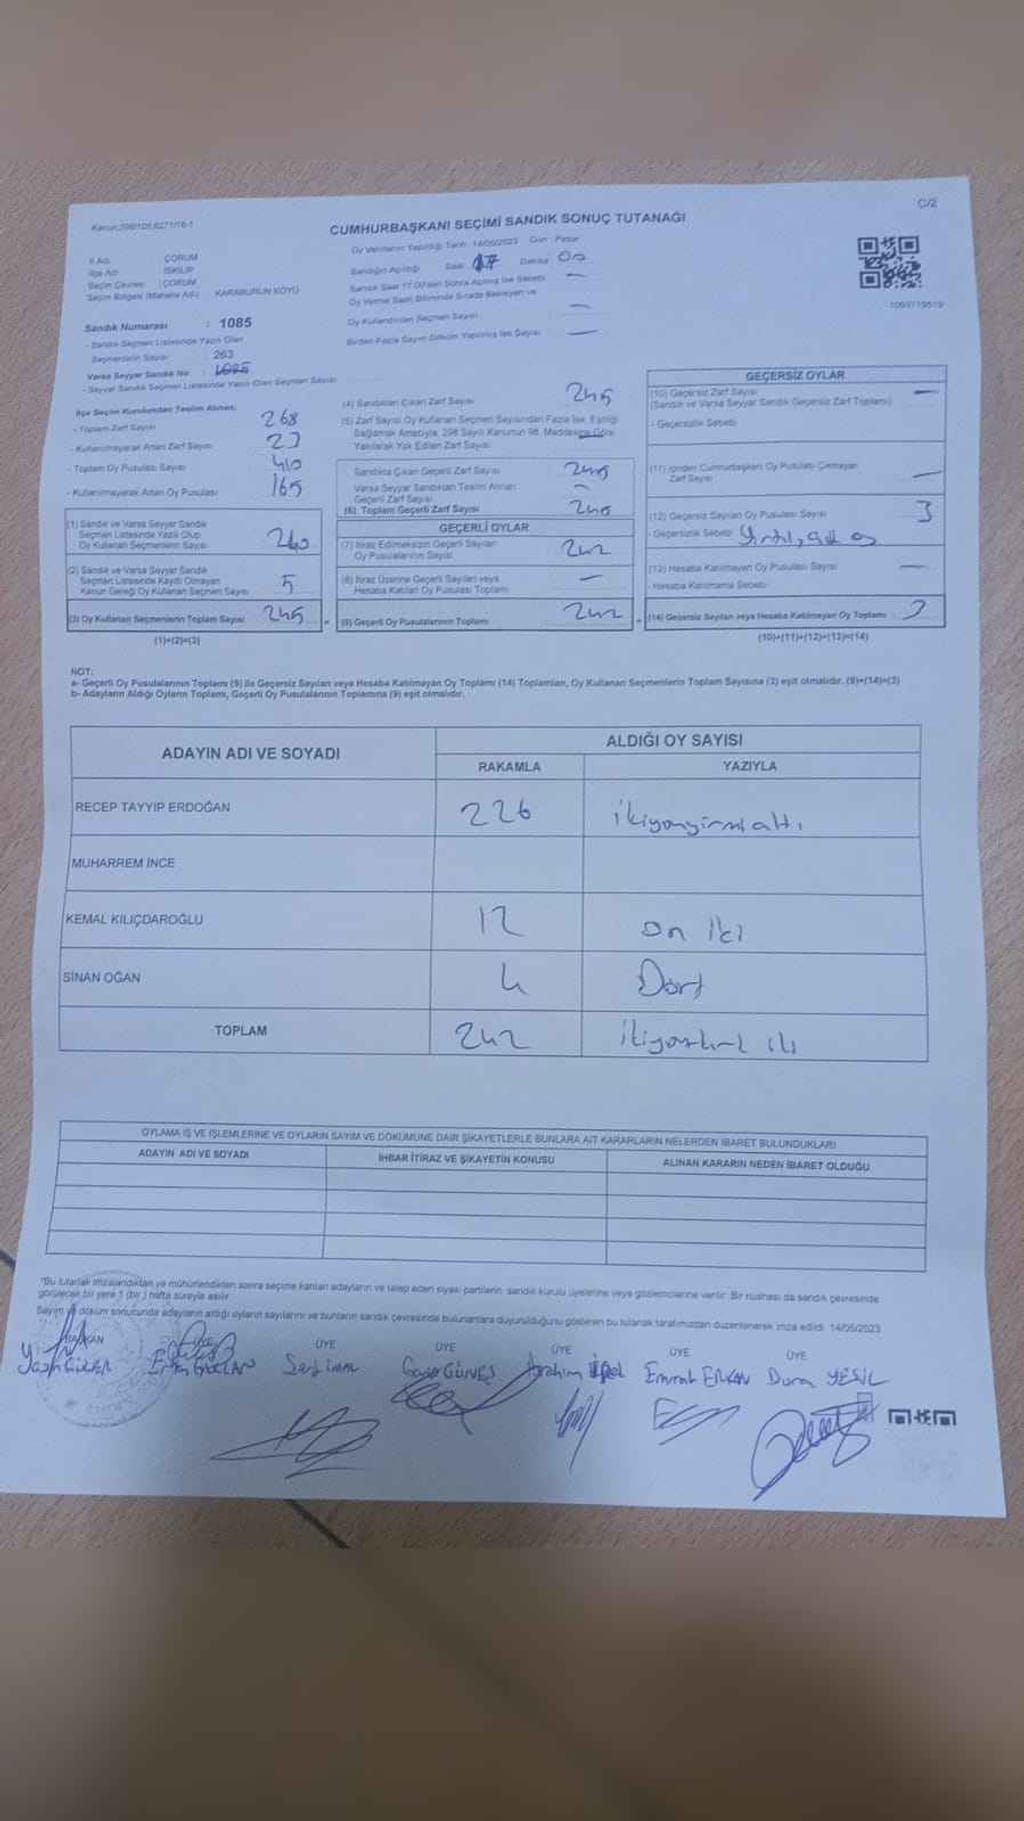 C/2
CUMHURBAŞKANI SEÇİMİ SANDIK SONUÇ TUTANAĞI
Oy Vermenin Yapıldığı Tarih: 14/05/2023 Gün: Pazar
İl Adı : ÇORUM
İlçe Adı : İSKİLİP
Seçim Çevresi : ÇORUM
Seçim Bölgesi (Mahalle Adı) : KARABURUN KÖYÜ
Sandığın Açıldığı Saat 17 Dakika 00
Oy Kullandırılan Seçmen Sayısı —
Birden Fazla Sayım Döküm Yapılmış İse Sayısı —
Sandık Numarası : 1085
- Sandık Seçmen Listesinde Yazılı Olan
Seçmenlerin Sayısı : 263
Varsa Seyyar Sandık No : 1085
- Seyyar Sandık Seçmen Listesinde Yazılı Olan Seçmen Sayısı
İlçe Seçim Kurulundan Teslim Alınan:
- Toplam Zarf Sayısı 268
- Kullanılmayarak Artan Zarf Sayısı 23
- Toplam Oy Pusulası Sayısı 410
- Kullanılmayarak Artan Oy Pusulası 165
(1) Sandık ve Varsa Seyyar Sandık
Seçmen Listesinde Yazılı Olup
Oy Kullanan Seçmenlerin Sayısı 240
(2) Sandık ve Varsa Seyyar Sandık
Seçmen Listesinde Kayıtlı Olmayan
Kanun Gereği Oy Kullanan Seçmen Sayısı 5
(3) Oy Kullanan Seçmenlerin Toplam Sayısı 245
(1)+(2)=(3)
(4) Sandıktan Çıkan Zarf Sayısı 245
(5) Zarf Sayısı Oy Kullanan Seçmen Sayısından Fazla İse, Eşitliği
Sağlamak Amacıyla, 298 Sayılı Kanunun 98. Maddesine Göre
Yakılarak Yok Edilen Zarf Sayısı
Sandıkta Çıkan Geçerli Zarf Sayısı
Varsa Seyyar Sandıktan Teslim Alınan
Geçerli Zarf Sayısı —
(6) Toplam Geçerli Zarf Sayısı
GEÇERLİ OYLAR
(7) İtiraz Edilmeksizin Geçerli Sayılan
Oy Pusulalarının Sayısı 242
(8) İtiraz Üzerine Geçerli Sayılan veya
Hesaba Katılan Oy Pusulası Toplamı —
(9) Geçerli Oy Pusulalarının Toplamı 242
GEÇERSİZ OYLAR
(10) Geçersiz Zarf Sayısı —
(Sandık ve Varsa Seyyar Sandık Geçersiz Zarf Toplamı)
- Geçersizlik Sebebi
(11) İçinden Cumhurbaşkanı Oy Pusulası Çıkmayan
Zarf Sayısı —
(12) Geçersiz Sayılan Oy Pusulası Sayısı 3
- Geçersizlik Sebebi
(13) Hesaba Katılmayan Oy Pusulası Sayısı —
- Hesaba Katılmama Sebebi
(14) Geçersiz Sayılan veya Hesaba Katılmayan Oy Toplamı 3
(10)+(11)+(12)+(13)=(14)
NOT:
a- Geçerli Oy Pusulalarının Toplamı (9) ile Geçersiz Sayılan veya Hesaba Katılmayan Oy Toplamı (14) Toplamları, Oy Kullanan Seçmenlerin Toplam Sayısına (3) eşit olmalıdır. (9)+(14)=(3)
b- Adayların Aldığı Oyların Toplamı, Geçerli Oy Pusulalarının Toplamına (9) eşit olmalıdır.
ADAYIN ADI VE SOYADI ALDIĞI OY SAYISI
RAKAMLA YAZIYLA
RECEP TAYYIP ERDOĞAN 226 ikiyüzyirmialtı
MUHARREM İNCE
KEMAL KILIÇDAROĞLU 12 on iki
SİNAN OĞAN 4 Dört
TOPLAM 242
OYLAMA İŞ VE İŞLEMLERİNE VE OYLARIN SAYIM VE DÖKÜMÜNE DAİR ŞİKAYETLERLE BUNLARA AİT KARARLARIN NELERDEN İBARET BULUNDUKLARI
ADAYIN ADI VE SOYADI İHBAR İTİRAZ VE ŞİKAYETİN KONUSU ALINAN KARARIN NEDEN İBARET OLDUĞU
*Bu tutanak imzalandıktan ve mühürlendikten sonra seçime katılan adayların ve talep eden siyasi partilerin sandık kurulu üyelerine veya gözlemcilerine verilir. Bir nüshası da sandık çevresinde
görülecek bir yere 1 (bir) hafta süreyle asılır.
Sayım ve döküm sonucunda adayların aldığı oyların sayılarını ve bunların sandık çevresinde bulunanlara duyurulduğunu gösteren bu tutanak tarafımızdan düzenlenerek imza edildi. 14/05/2023
BAŞKAN ÜYE ÜYE ÜYE ÜYE ÜYE
GÜNEŞ İbrahim Emrah ERKAN YEŞİL